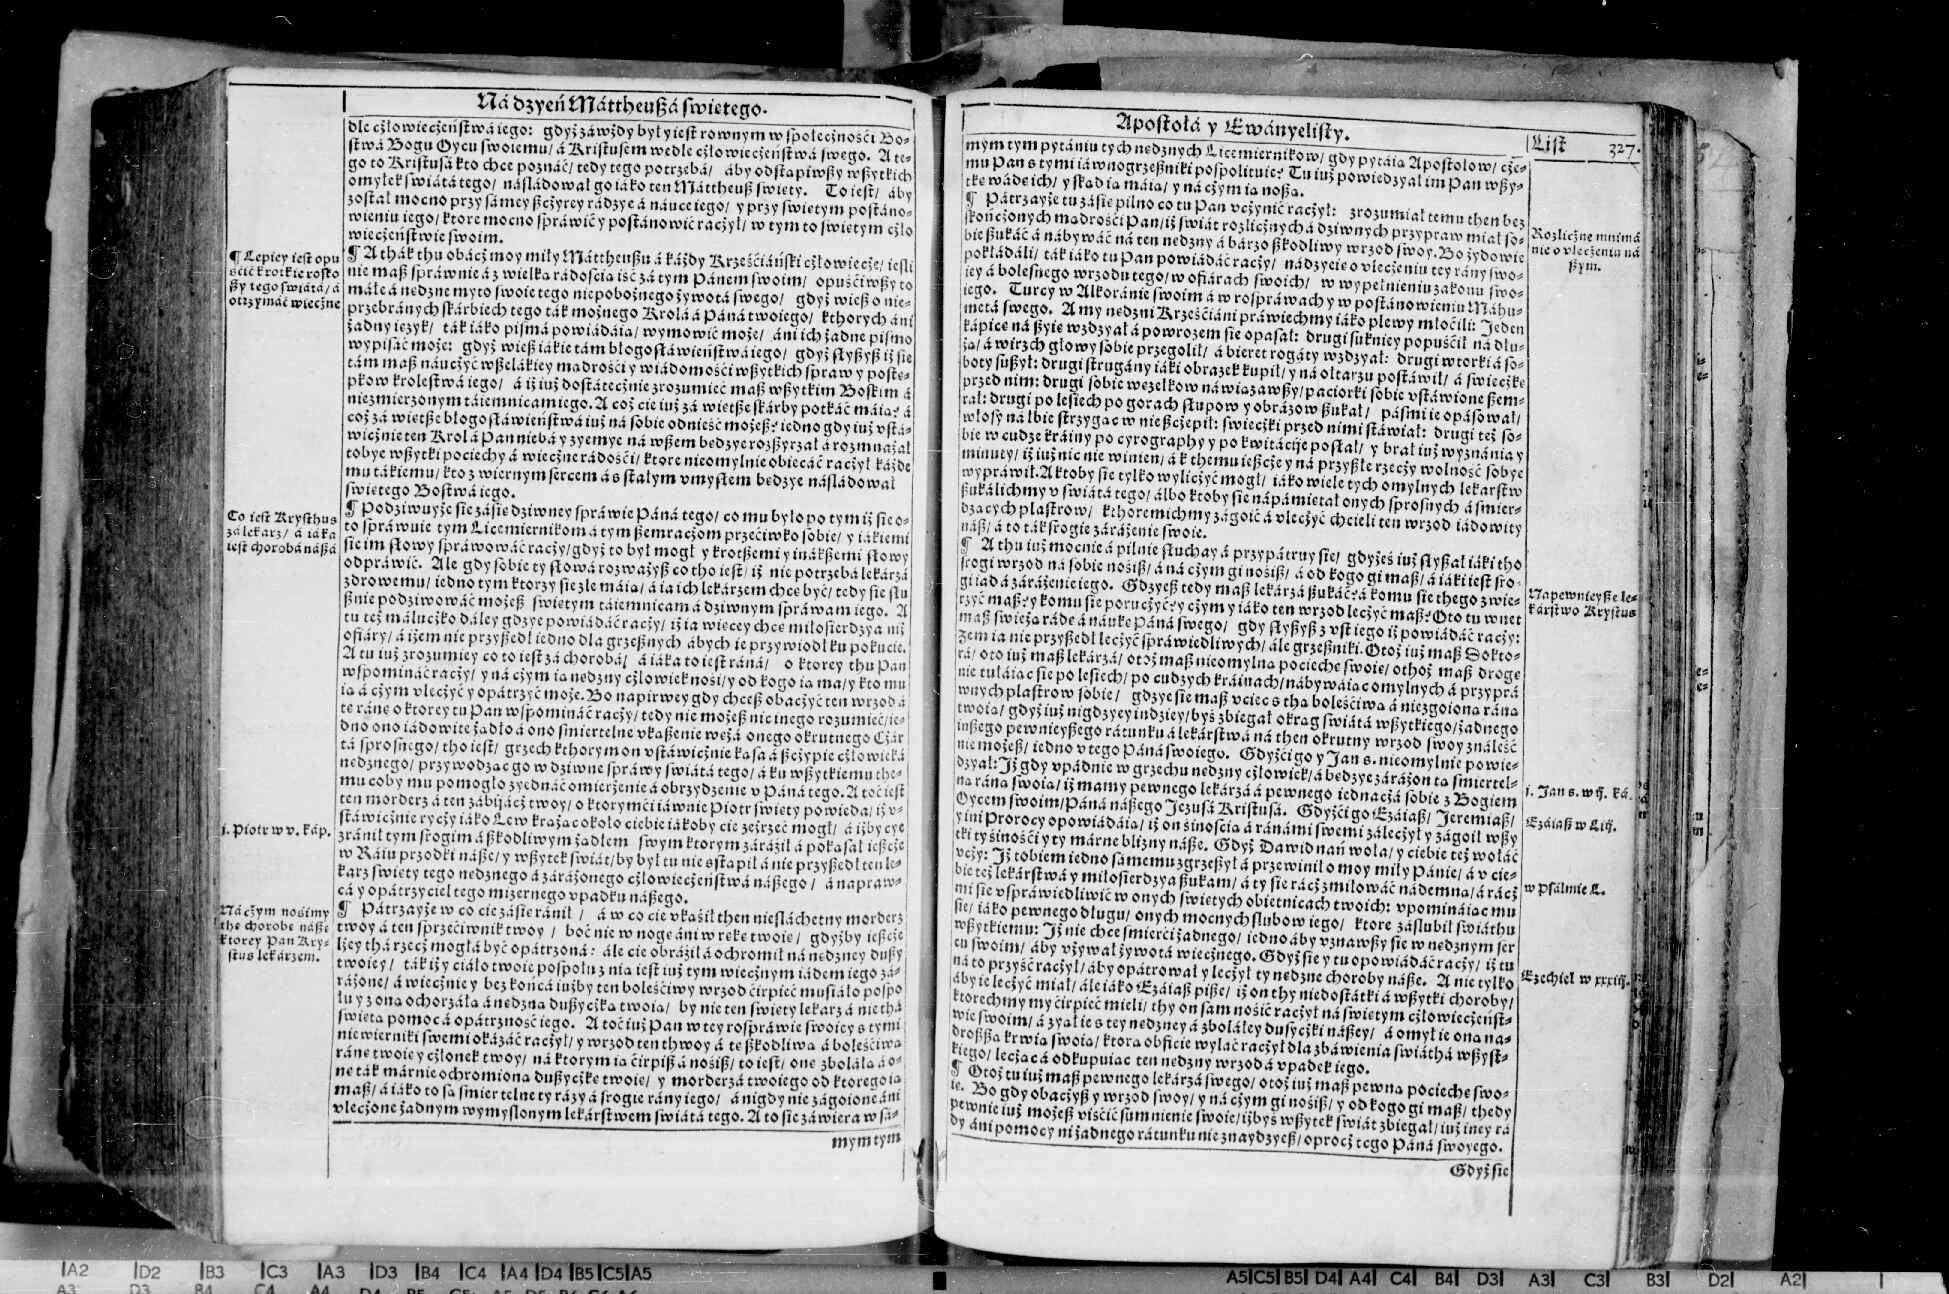 Ná dzyeń Máttheuszá swietego.
dle człowieczeństwá iego: gdyż záwżdy był y iest rownym w społeczności Bo-
stwá Bogu Oycu swoiemu/ á Kristusem wedle człowieczeństwá swego. A te-
go to Kristusá kto chce poznáć/ tedy tego potrzebá/ áby odstąpiwszy wszytkich
omyłek świátá tego/ násládował go iáko ten Máttheusz swiety. To iest/ áby
został mocno przy sámey szczyrey rádzye á náuce iego/ y przy swietym postáno-
wieniu iego/ ktore mocno spráwić y postánowić raczył/ w tym to swietym czło
wieczeństwie swoim.
¶ A thák thu obácż moy miły Máttheuszu á káżdy Krześćiáński człowiecze/ iesli
nie masz spráwnie á z wielką rádością iść zá tym Pánem swoim/ opuściwszy to
máłe á nedzne myto swoie tego niepobożnego żywotá swego/ gdyż wiesz o nie-
przebránych skárbiech tego ták możnego Krolá á Páná twoiego/ kthorych áni
żadny iezyk/ ták iáko pismá powiádáią/ wymowić może/ áni ich żadne pismo
wypisáć może: gdyż wiesz iákie tám błogosłáwieństwá iego/ gdyż słyszysz iż sie
tám masz náuczyć wszelákiey mądrości y wiádomości wszytkich spraw y poste-
pkow krolestwá iego/ á iż iuż dostátecznie zrozumieć masz wszytkim Boskim á
niezmierzonym táiemnicam iego. A coż cie iuż zá wietsze skárby potkáć máią? á
coż zá wietsze błogosłáwieństwá iuż ná sobie odnieść możesz? iedno gdy iuż vstá-
wicznie ten Krol á Pan niebá y zyemye ná wszem bedzye rozszyrzał á rozmnażał
tobye wszytki pociechy á wieczne rádości/ ktore nieomylnie obiecáć raczył káżde
mu tákiemu/ kto z wiernym sercem á s stałym vmysłem bedzye násládował
swietego Bostwá iego.
¶ Podziwuyże sie zásie dziwney spráwie Páná tego/ co mu było po tym iż sie o-
to spráwuie tym Licemiernikom á tym szemraczom przeciwko sobie/ y iákiemi
sie im słowy spráwowáć raczy/ gdyż to był mogł y krotszemi y inákszemi słowy
odpráwić. Ale gdy sobie ty słowá rozważysz co tho iest/ iż nie potrzebá lekárzá
zdrowemu/ iedno tym ktorzy sie źle máią/ á ia ich lekárzem chce być/ tedy sie słu
sznie podziwowáć możesz swietym táiemnicam á dziwnym spráwam iego. A
tu też máluczko dáley gdzye powiádáć raczy/ iż ia wiecey chce miłosierdzya niż
ofiáry/ á iżem nie przyszedł iedno dla grzesznych ábych ie przywiodł ku pokucie.
A tu iuż zrozumiey co to iest zá chorobá/ á iáka to iest ráná/ o ktorey thu Pan
wspomináć raczy/ y ná czym ią nedzny człowiek nosi/ y od kogo ią ma/ y kto mu
ią á czym vleczyć y opátrzyć może. Bo napirwey gdy chcesz obaczyć ten wrzod á
te ráne o ktorey tu Pan wspomináć raczy/ tedy nie możesz nic inego rozumieć/ ie-
dno ono iádowite żądło á ono śmiertelne vkąszenie wężá onego okrutnego Czár
tá sprosnego/ tho iest/ grzech kthorym on vstáwicznie kąsa á szczypie człowieká
nedznego/ przywodząc go w dziwne spráwy świátá tego/ á ku wszytkiemu the-
mu coby mu pomogło zyednáć omierżenie á obrzydzenie v Páná tego. A toć iest
ten morderz á ten zábijácż twoy/ o ktorymći iáwnie Piotr swiety powieda/ iż v-
stáwicznie ryczy iáko Lew krążąc około ciebie iákoby cie zeżrzeć mogł/ á iżby cye
zránił tym srogim á szkodliwym żądłem swym ktorym záráził á pokąsał ieszcze
w Ráiu przodki násze/ y wszytek świát/ by był tu nie zstąpił á nie przyszedł ten le-
karz swiety tego nedznego á záráżonego człowieczeństwá nászego/ á napraw-
cá y opátrzyciel tego mizernego vpadku nászego.
¶ Pátrzayże w co cie zásie ránił/ á w co cie vkąsił then nieslachetny morderz
twoy á ten sprzeciwnik twoy/ boć nie w noge áni w reke twoie/ gdyżby ieszcze
lżey thá rzecż mogłá być opátrzoná: ále cie obráził á ochromił ná nedzney duszy
twoiey/ ták iż y ciáło twoie pospołu z nią iest iuż tym wiecznym iádem iego zá-
ráżone/ á wiecznie y bez końcá iużby ten boleściwy wrzod cirpieć musiáło pospo
łu y z oną ochorzáłą á nedzną duszyczką twoią/ by nie ten swiety lekarz á nie thá
swieta pomoc á opátrzność iego. A toć iuż Pan w tey rospráwie swoiey s tymi
niewierniki swemi okázáć raczył/ y wrzod ten thwoy á te szkodliwą á boleściwą
ráne twoie y członek twoy/ ná ktorym ią cirpisz á nosisz/ to iest/ one zbolałą á o-
ne ták márnie ochromioną duszyczke twoie/ y morderzá twoiego od ktorego ią
masz/ á iáko to są śmiertelne ty rázy á srogie rány iego/ á nigdy nie zágoione áni
vleczone żadnym wymyslonym lekárstwem świátá tego. A to sie záwiera w sá-
mym tym
¶ Lepiey iest opu
ścić krotkie rosko
szy tego świátá/ á
otrzymáć wieczne
Co iest Krysthus
zá lekarz/ á iáka
iest chorobá nászá
j. Piotr w v. káp.
Ná czym nosimy
the chorobe násze
ktorey Pan Kry-
stus lekárzem.
Apostołá y Ewányelisty.
List 327.
mym tym pytániu tych nedznych Licemiernikow/ gdy pytáią Apostołow/ cze-
mu Pan s tymi iáwnogrzeszniki pospolituie? Tu iuż powiedzyał im Pan wszy-
tke wáde ich/ y skąd ią máią/ y ná czym ią noszą.
¶ Pátrzayże tu zásie pilno co tu Pan vczynić raczył: zrozumiał temu then bez
skończonych mądrości Pan/ iż świát rozlicznych á dziwnych przypraw miał so-
bie szukáć á nábywáć ná ten nedzny á bárzo szkodliwy wrzod swoy. Bo żydowie
pokłádáli/ ták iáko tu Pan powiádáć raczy/ nádzyeie o vleczeniu tey rány swo-
iey á bolesnego wrzodu tego/ w ofiárach swoich/ w wypełnieniu zakonu swo-
iego. Turcy w Alkoranie swoim á w rospráwach y w postánowieniu Máhu-
metá swego. A my nedzni Krześćiáni práwiechmy iáko plewy młocili: Jeden
kápice ná szyie wzdzyał á powrozem sie opasał: drugi sukniey popuścił ná dłu-
żą/ á wirzch głowy sobie przegolił/ á bieret rogáty wzdzyał: drugi wtorki á so-
boty suszył: drugi strugány iáki obrazek kupił/ y ná ołtarzu postáwił/ á świeczke
przed nim: drugi sobie wezełkow náwiązawszy/ paciorki sobie vstáwione szem-
rał: drugi po lesiech po gorach słupow y obrázow szukał/ pásmi ie opásował/
włosy ná łbie strzygąc w nie szczepił: świeczki przed nimi stáwiał: drugi też so-
bie w cudze kráiny po cyrográphy y po kwitácije posłał/ y brał iuż wyznánia y
minuty/ iż iuż nic nie winien/ á k themu ieszcze y ná przyszłe rzeczy wolność sobye
wypráwił. A ktoby sie tylko wyliczyć mogł/ iáko wiele tych omylnych lekarstw
szukálichmy v świátá tego/ álbo ktoby sie nápámietał onych sprosnych á śmier-
dzących plastrow/ kthoremichmy zágoić á vleczyć chcieli ten wrzod iádowity
nász/ á to ták srogie záráżenie swoie.
¶ A thu iuż mocnie á pilnie słuchay á przypátruy sie/ gdyżeś iuż słyszał iáki tho
srogi wrzod ná sobie nosisz/ á ná czym gi nosisz/ á od kogo gi masz/ á iáki iest sro-
gi iad á záráżenie iego. Gdzyesz tedy masz lekárzá szukáć? á komu sie thego zwie-
rzyć masz? y komu sie poruczyć? y czym y iáko ten wrzod leczyć masz? Oto tu wnet
masz świeżą ráde á náuke Páná swego/ gdy słyszysz z vst iego iż powiádáć raczy:
Żem ia nie przyszedł leczyć spráwiedliwych/ ále grzeszniki. Otoż iuż masz Dokto-
rá/ oto iuż masz lekárzá/ otoż masz nieomylną pocieche swoie/ othoż masz droge
nie tułáiąc sie po lesiech/ po cudzych kráinach/ nábywáiąc omylnych á przyprá
wnych plastrow sobie/ gdzye sie masz vciec s thą boleściwą á niezgoioną ráną
twoią/ gdyż iuż nigdzyey indziey/ byś zbiegał okrąg świátá wszytkiego/ żadnego
inszego pewnieyszego rátunku á lekárstwá ná then okrutny wrzod swoy ználeść
nie możesz/ iedno v tego Páná swoiego. Gdyżći go y Jan s. nieomylnie powie-
dzyał: Iż gdy vpádnie w grzechu nedzny człowiek/ á bedzye záráżon tą śmiertel-
ną ráną swoią/ iż mamy pewnego lekárzá á pewnego iednaczá sobie z Bogiem
Oycem swoim/ Páná nászego Jezusá Kristusá. Gdyżći go Ezáiasz/ Jeremiasz/
y ini Prorocy opowiádáią/ iż on śinością á ránámi swemi záleczył y zágoił wszy
tki ty śiności y ty márne blizny násze. Gdyż Dawid nań woła/ y ciebie też wołáć
vczy: Iż tobiem iedno sámemu zgrzeszył á przewinił o moy miły Pánie/ á v cie-
bie też lekárstwá y miłosierdzya szukam/ á ty sie rácż zmiłowáć nádemną/ á rácż
mi sie vspráwiedliwić w onych swietych obietnicach twoich: vpomináiąc mu
sie/ iáko pewnego długu/ onych mocnych slubow iego/ ktore záslubił świáthu
wszytkiemu: Iż nie chce śmierci żadnego/ iedno áby vznawszy sie w nedznym ser
cu swoim/ áby vżywał żywotá wiecznego. Gdyż sie y tu opowiádáć raczy/ iż tu
ná to przyść raczył/ áby opátrował y leczył ty nedzne choroby násze. A nie tylko
áby ie leczyć miał/ ále iáko Ezáiasz pisze/ iż on thy niedostátki á wszytki choroby/
ktorechmy my cirpieć mieli/ thy on sam nosić raczył ná swietym człowieczeńst-
wie swoim/ á zyął ie s tey nedzney á zbolałey dusyczki nászey/ á omył ie oną na-
droższą krwią swoią/ ktorą obficie wylać raczył dla zbáwienia świáthá wszyst-
kiego/ lecząc á odkupuiąc ten nedzny wrzod á vpadek iego.
¶ Otoż tu iuż masz pewnego lekárzá swego/ otoż iuż masz pewną pocieche swo-
ie. Bo gdy obaczysz y wrzod swoy/ y ná czym gi nosisz/ y od kogo gi masz/ thedy
pewnie iuż możesz viścić sumnienie swoie/ iżbyś wszytek świát zbiegał/ iuż iney rá
dy áni pomocy ni żadnego rátunku nie znaydzyesz/ oprocż tego Páná swoyego.
Gdyż sie
Rozliczne mnimá
nie o vleczeniu ná
szym.
Napewnieysze le-
kárstwo Krystus
j. Jan s. w ij. ká.
Ezáiasz w Liij.
w Psálmie L.
Ezechiel w xxxiij.
A2 D2 B3 C3 A3 D3 B4 C4 A4 D4 B5 C5 A5
A5 C5 B5 D4 A4 C4 B4 D3 A3 C3 B3 D2 A2